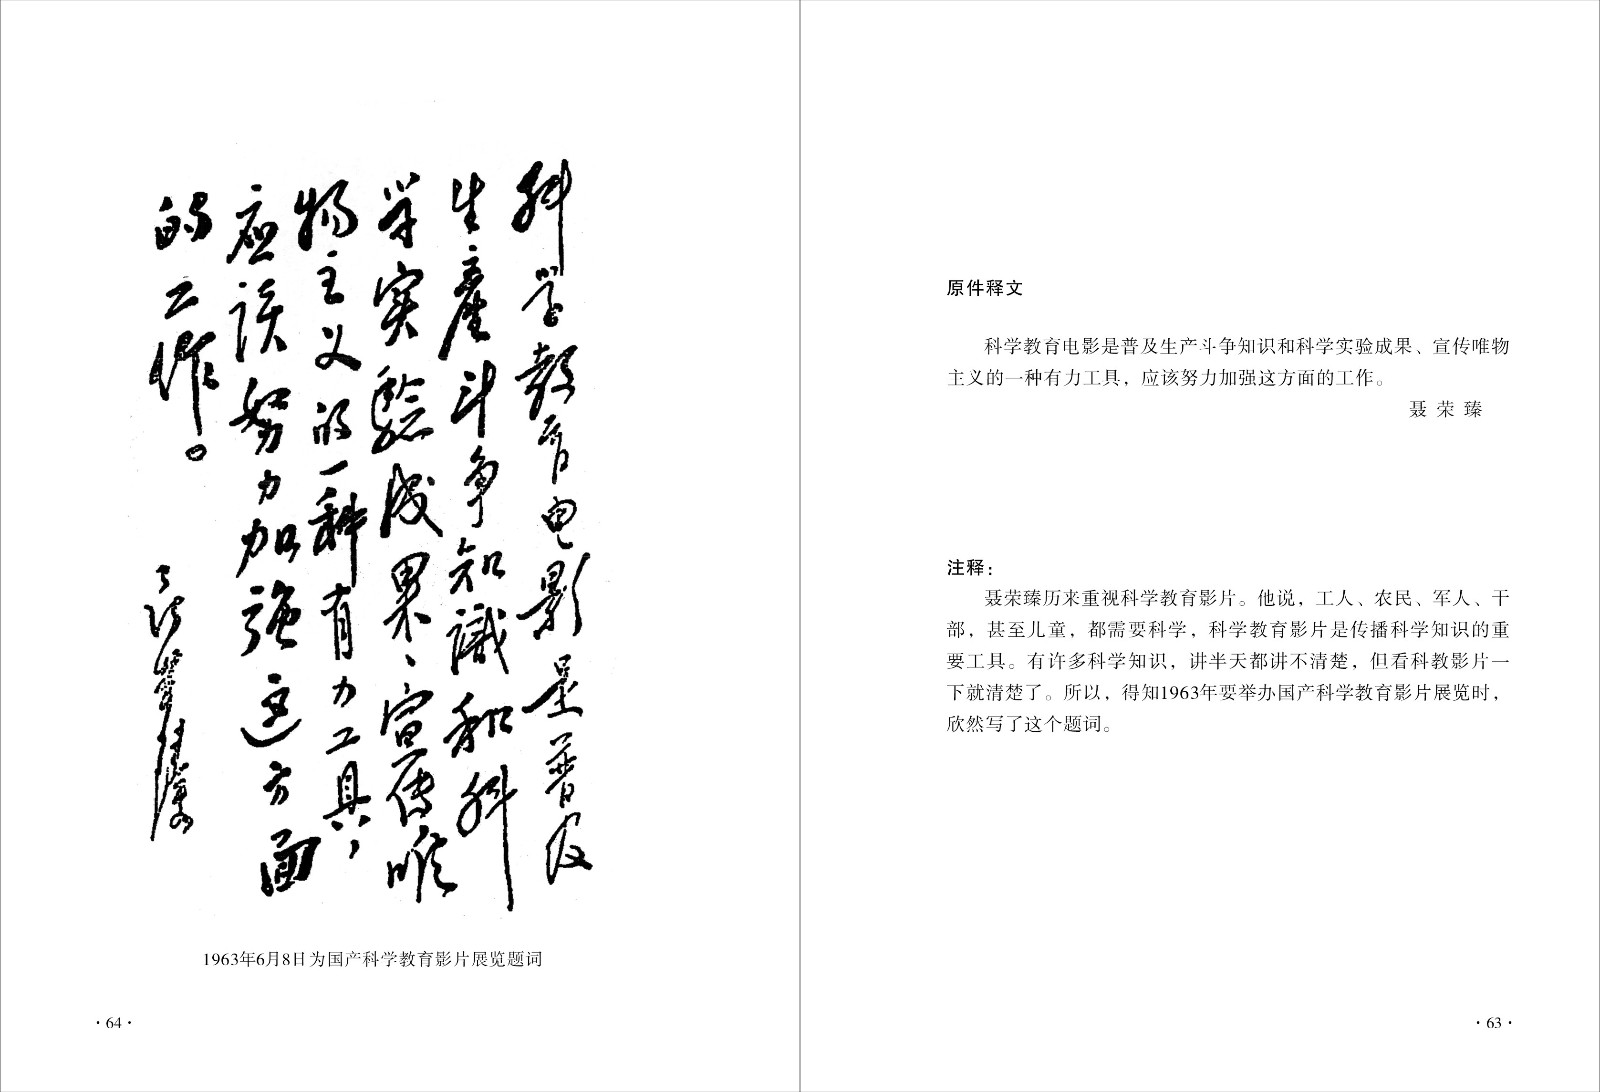 科学教育电影是普及
生產斗争知識和科
学实驗成果、宣传唯
物主义的一种有力工具，
应该努力加强这方面
的工作。
聂荣臻
1963年6月8日为国产科学教育影片展览题词
·64·
原件释文
科学教育电影是普及生产斗争知识和科学实验成果、宣传唯物
主义的一种有力工具，应该努力加强这方面的工作。
聂荣臻
注释：
聂荣臻历来重视科学教育影片。他说，工人、农民、军人、干
部，甚至儿童，都需要科学，科学教育影片是传播科学知识的重
要工具。有许多科学知识，讲半天都讲不清楚，但看科教影片一
下就清楚了。所以，得知1963年要举办国产科学教育影片展览时，
欣然写了这个题词。
·63·